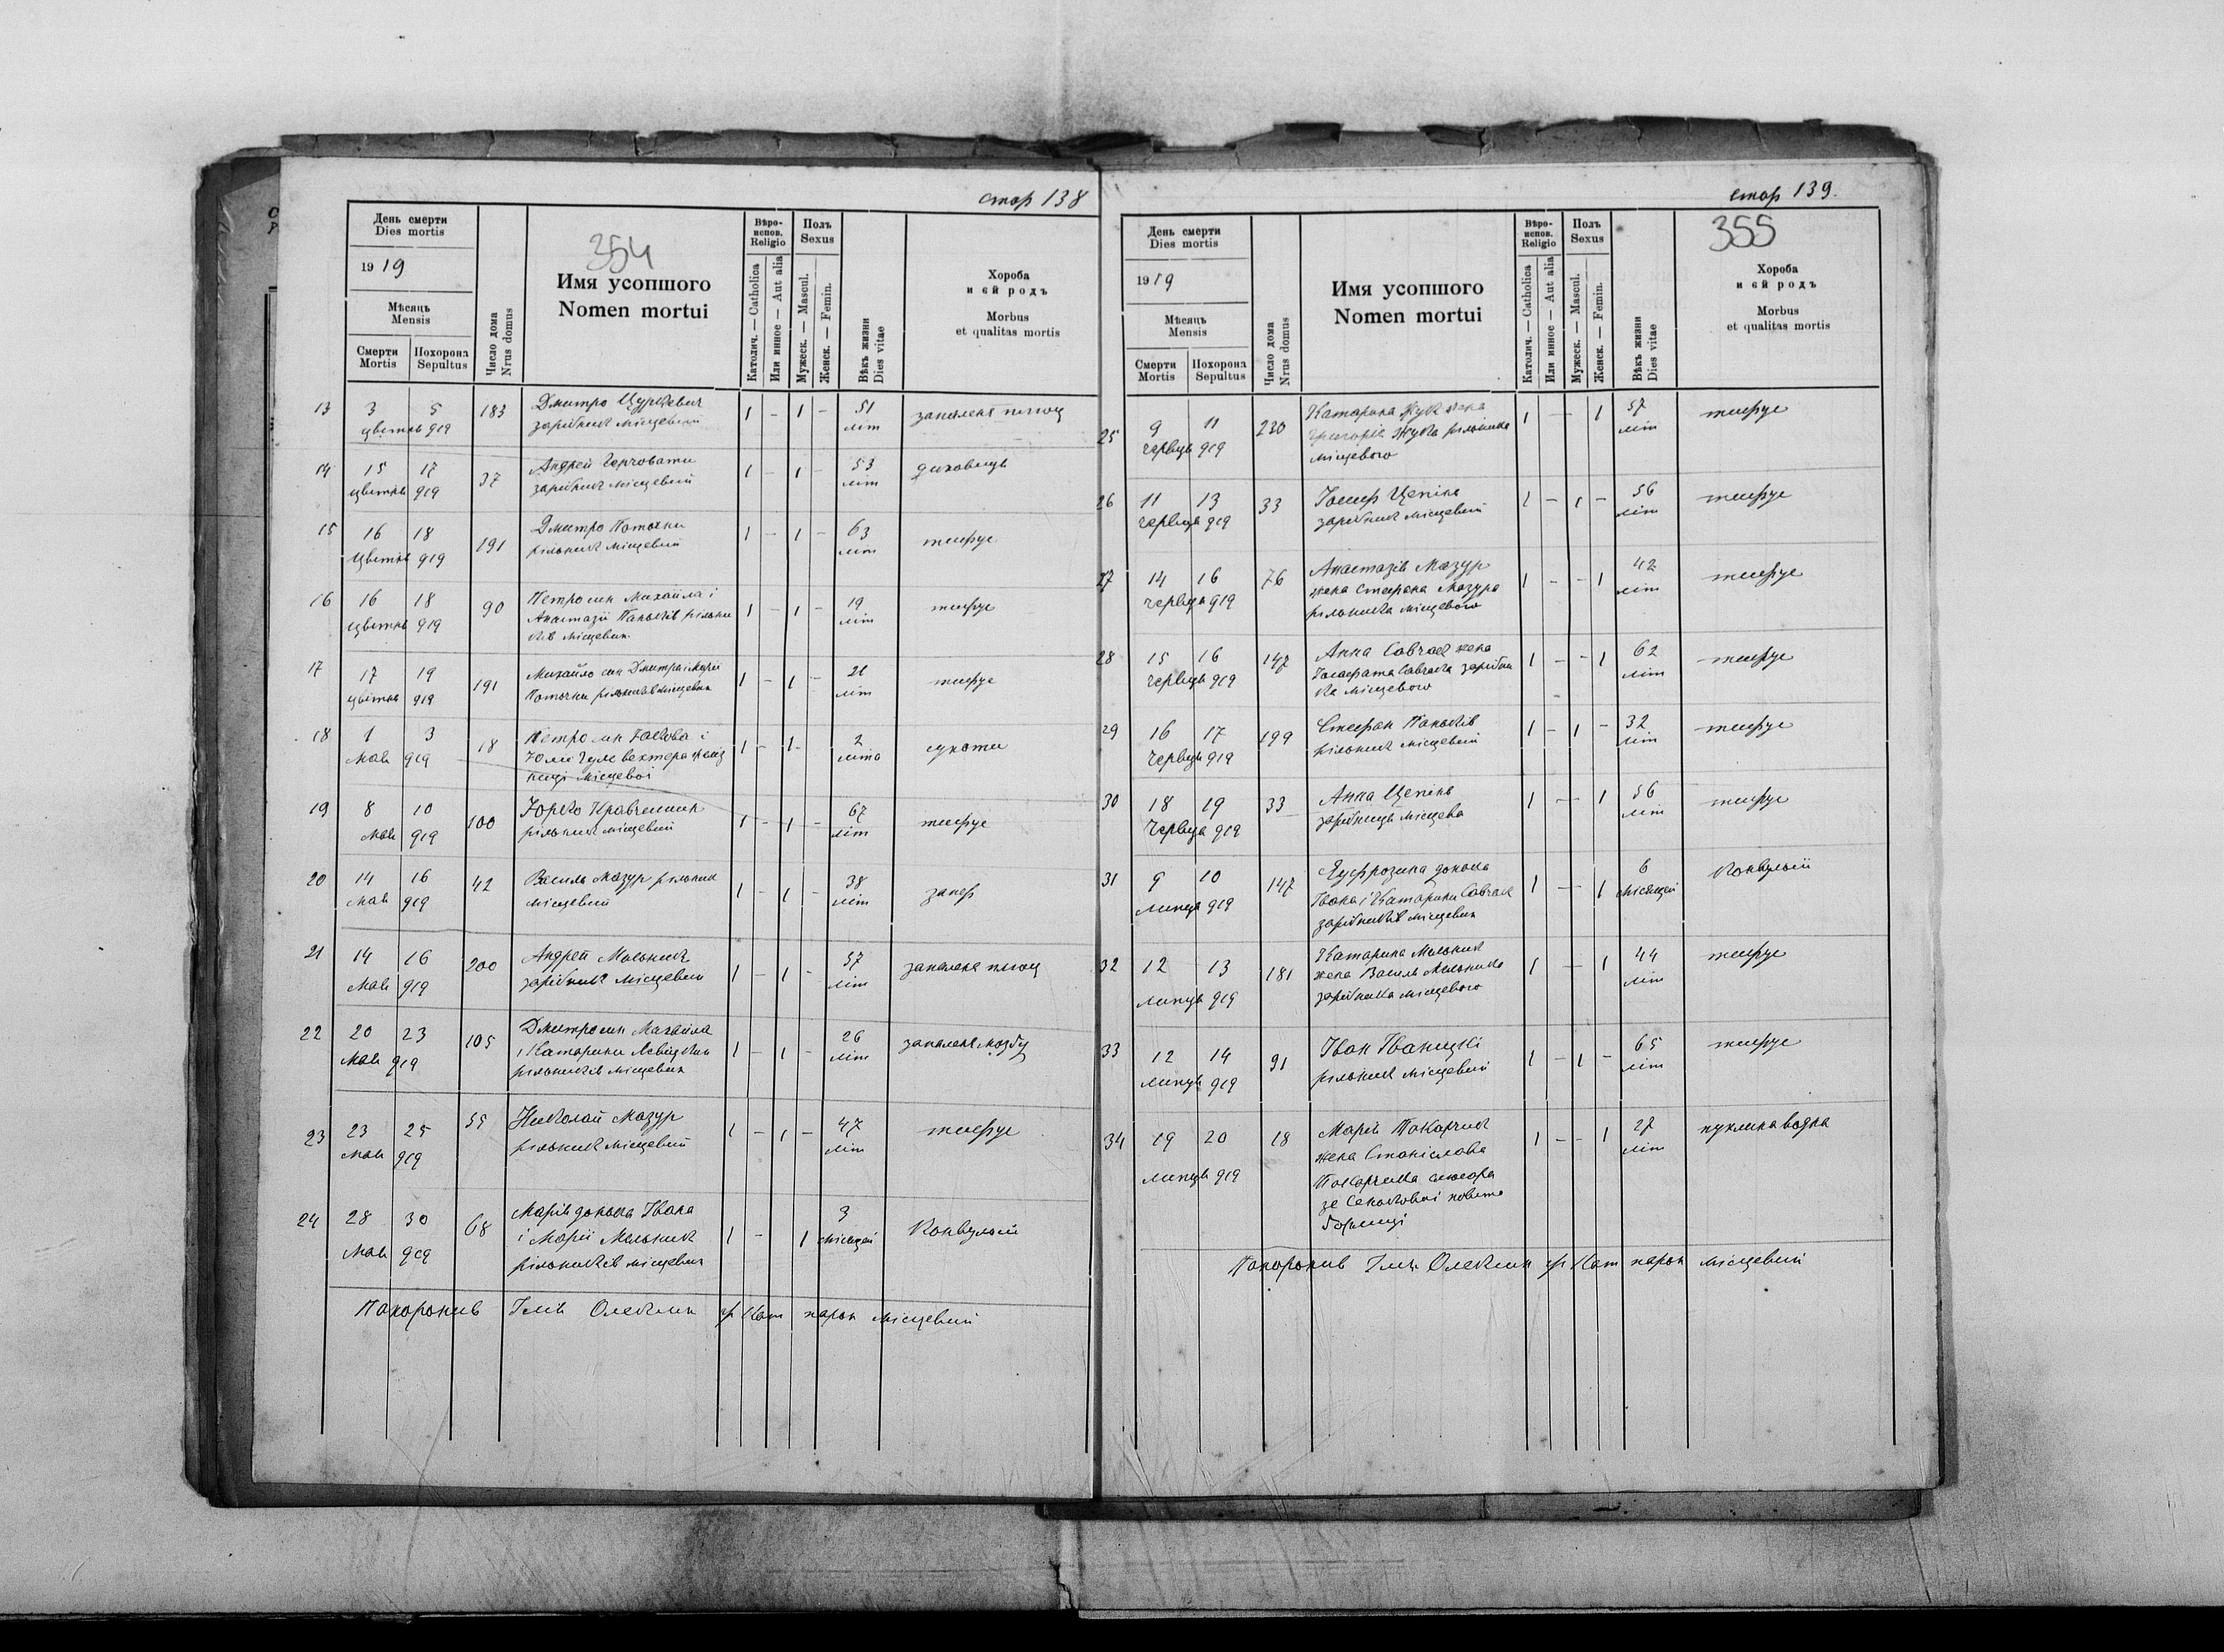 стор 138
День смерти
Dies mortis
1919
Мѣсяць
Mensis
Смерти
Mortis
Похорона
Sepultus
Число дома
Nrus domus
354
Имя усопшого
Nomen mortui
Вѣро-
испов.
Religio
Католич. — Catholica
Или инное — Aut alia
Полъ
Sexus
Мужеск. — Mascul.
Женск. — Femin.
Вѣкъ жизни
Dies vitae
Хороба
и єй родъ
Morbus
et qualitas mortis
13 3 5 183 Дмитро 1 – 1 – 51 запаленя
цвітня 919 зарібник місцевий літ
14 15 17 37 Андрей 1 – 1 – 53 диховиця
цвітня 919 зарібник місцевий літ
15 16 18 191 Дмитро Поточни 1 – 1 – 63 тифус
Цвітня 919 рільник місцевий літ
16 16 18 90 Петро син Михайла і 1 – 1 – 19 тифус
цвітня 919 Анастазії Паньків рільни літ
ків місцевих
17 17 19 191 Михайло син Дмитра і Марії 1 – 1 – 21 тифус
цвітня 919 Поточни рільників місцевих літ
18 1 3 18 Петро син Якова і 1 – 1 – 2 сухоти
Мая 919 Юлії літа
місцевої
19 8 10 100 Юрко Кравчишин 1 – 1 – 67 тифус
Мая 919 рільник місцевий літ
20 14 16 42 Василь Мазур рільник 1 – 1 – 38
Мая 919 місцевий літ
21 14 16 200 Андрей Мельник 1 – 1 – 57 запаленя
Мая 919 зарібник місцевий літ
22 20 23 105 Дмитро син Михайла 1 – 1 – 26 запаленя мозгу
Мая 919 і Катарини літ
рільників місцевих
23 23 25 55 Николай Мазур 1 – 1 – 47 тифус
Мая 919 рільник місцевий літ
24 28 30 68 Марія донька Івана 1 – 1 3 Конвульсії
Мая 919 і Марії Мельник місяцей
рільників місцевих
Похоронив Ілія Олексин гр Кат парох місцевий
стор 139.
День смерти
Dies mortis
1919
Мѣсяць
Mensis
Смерти
Mortis
Похорона
Sepultus
Число дома
Nrus domus
Имя усопшого
Nomen mortui
Вѣро-
испов.
Religio
Католич. — Catholica
Или инное — Aut alia
Полъ
Sexus
Мужеск. — Mascul.
Женск. — Femin.
Вѣкъ жизни
Dies vitae
355
Хороба
и єй родъ
Morbus
et qualitas mortis
25 9 11 220 Катарина Жук жена 1 – 1 57 тифус
червця 919 Григорія Жука рільника літ
місцевого
26 11 13 33 Йосиф Цепіна 1 – 1 – 56 тифус
червця 919 зарібник місцевий літ
27 14 16 76 Анастазія Мазур 1 – – 1 42 тифус
червця 919 жена Стефана Мазура літ
рільника місцевого
28 15 16 147 Анна Савчак жена 1 – – 1 62 тифус
червця 919 Йосафата Савчака зарібни літ
ка місцевого
29 16 17 199 Стефан Паньків 1 – 1 – 32 тифус
Червця 919 рільник місцевий літ
30 18 19 33 Анна Цепіна 1 – 1 56 тифус
Червця 919 зарібниця місцева літ
31 9 10 147 Евфрозина донька 1 – 1 6 Конвульсії
липця 919 Івана і Катарини Савчак місяцей
зарібників місцевих
32 12 13 181 Катарина Мельник 1 – 1 44 тифус
липця 919 жена Василя Мельника літ
зарібника місцевого
33 12 14 91 Іван Іваницкі 1 – 1 – 65 тифус
липця 919 рільник місцевий літ
34 19 20 18 Марія Токарчик 1 – – 1 27 пухлина водна
липця 919 жена Станіслава літ
Токарчика
зе Сенькової повіта
Горлиці
Похоронив Ілія Олексин гр Кат парох місцевий